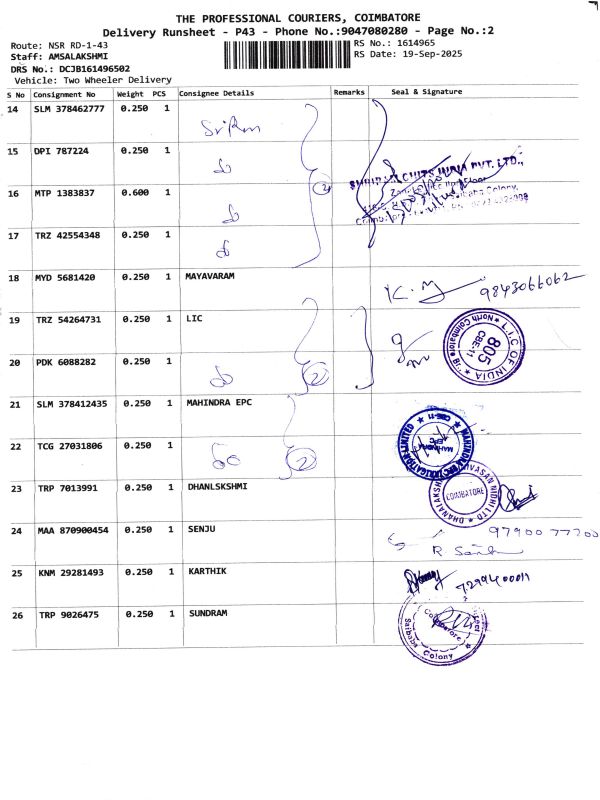 THE PROFESSIONAL COURIERS, COIMBATORE
Delivery Runsheet - P43 - Phone No.:9047080280 - Page No.:2
Route: NSR RD-1-43 RS No.: 1614965
Staff: AMSALAKSHMI RS Date: 19-Sep-2025
DRS No.: DCJB161496502
Vehicle: Two Wheeler Delivery
S No Consignment No Weight PCS Consignee Details Remarks Seal & Signature
14 SLM 378462777 0.250 1
15 DPI 787224 0.250 1
16 MTP 1383837 0.600 1
17 TRZ 42554348 0.250 1
18 MYD 5681420 0.250 1 MAYAVARAM 9843066062
19 TRZ 54264731 0.250 1 LIC
L.I.C OF INDIA North Coimbatore Br. 805 CBE-11
20 PDK 6088282 0.250 1 2
21 SLM 378412435 0.250 1 MAHINDRA EPC
22 TCG 27031806 0.250 1 2
23 TRP 7013991 0.250 1 DHANLSKSHMI
COIMBATORE
24 MAA 870900454 0.250 1 SENJU 9790077700
25 KNM 29281493 0.250 1 KARTHIK
26 TRP 9026475 0.250 1 SUNDRAM
Coimbatore
Saibaba Colony